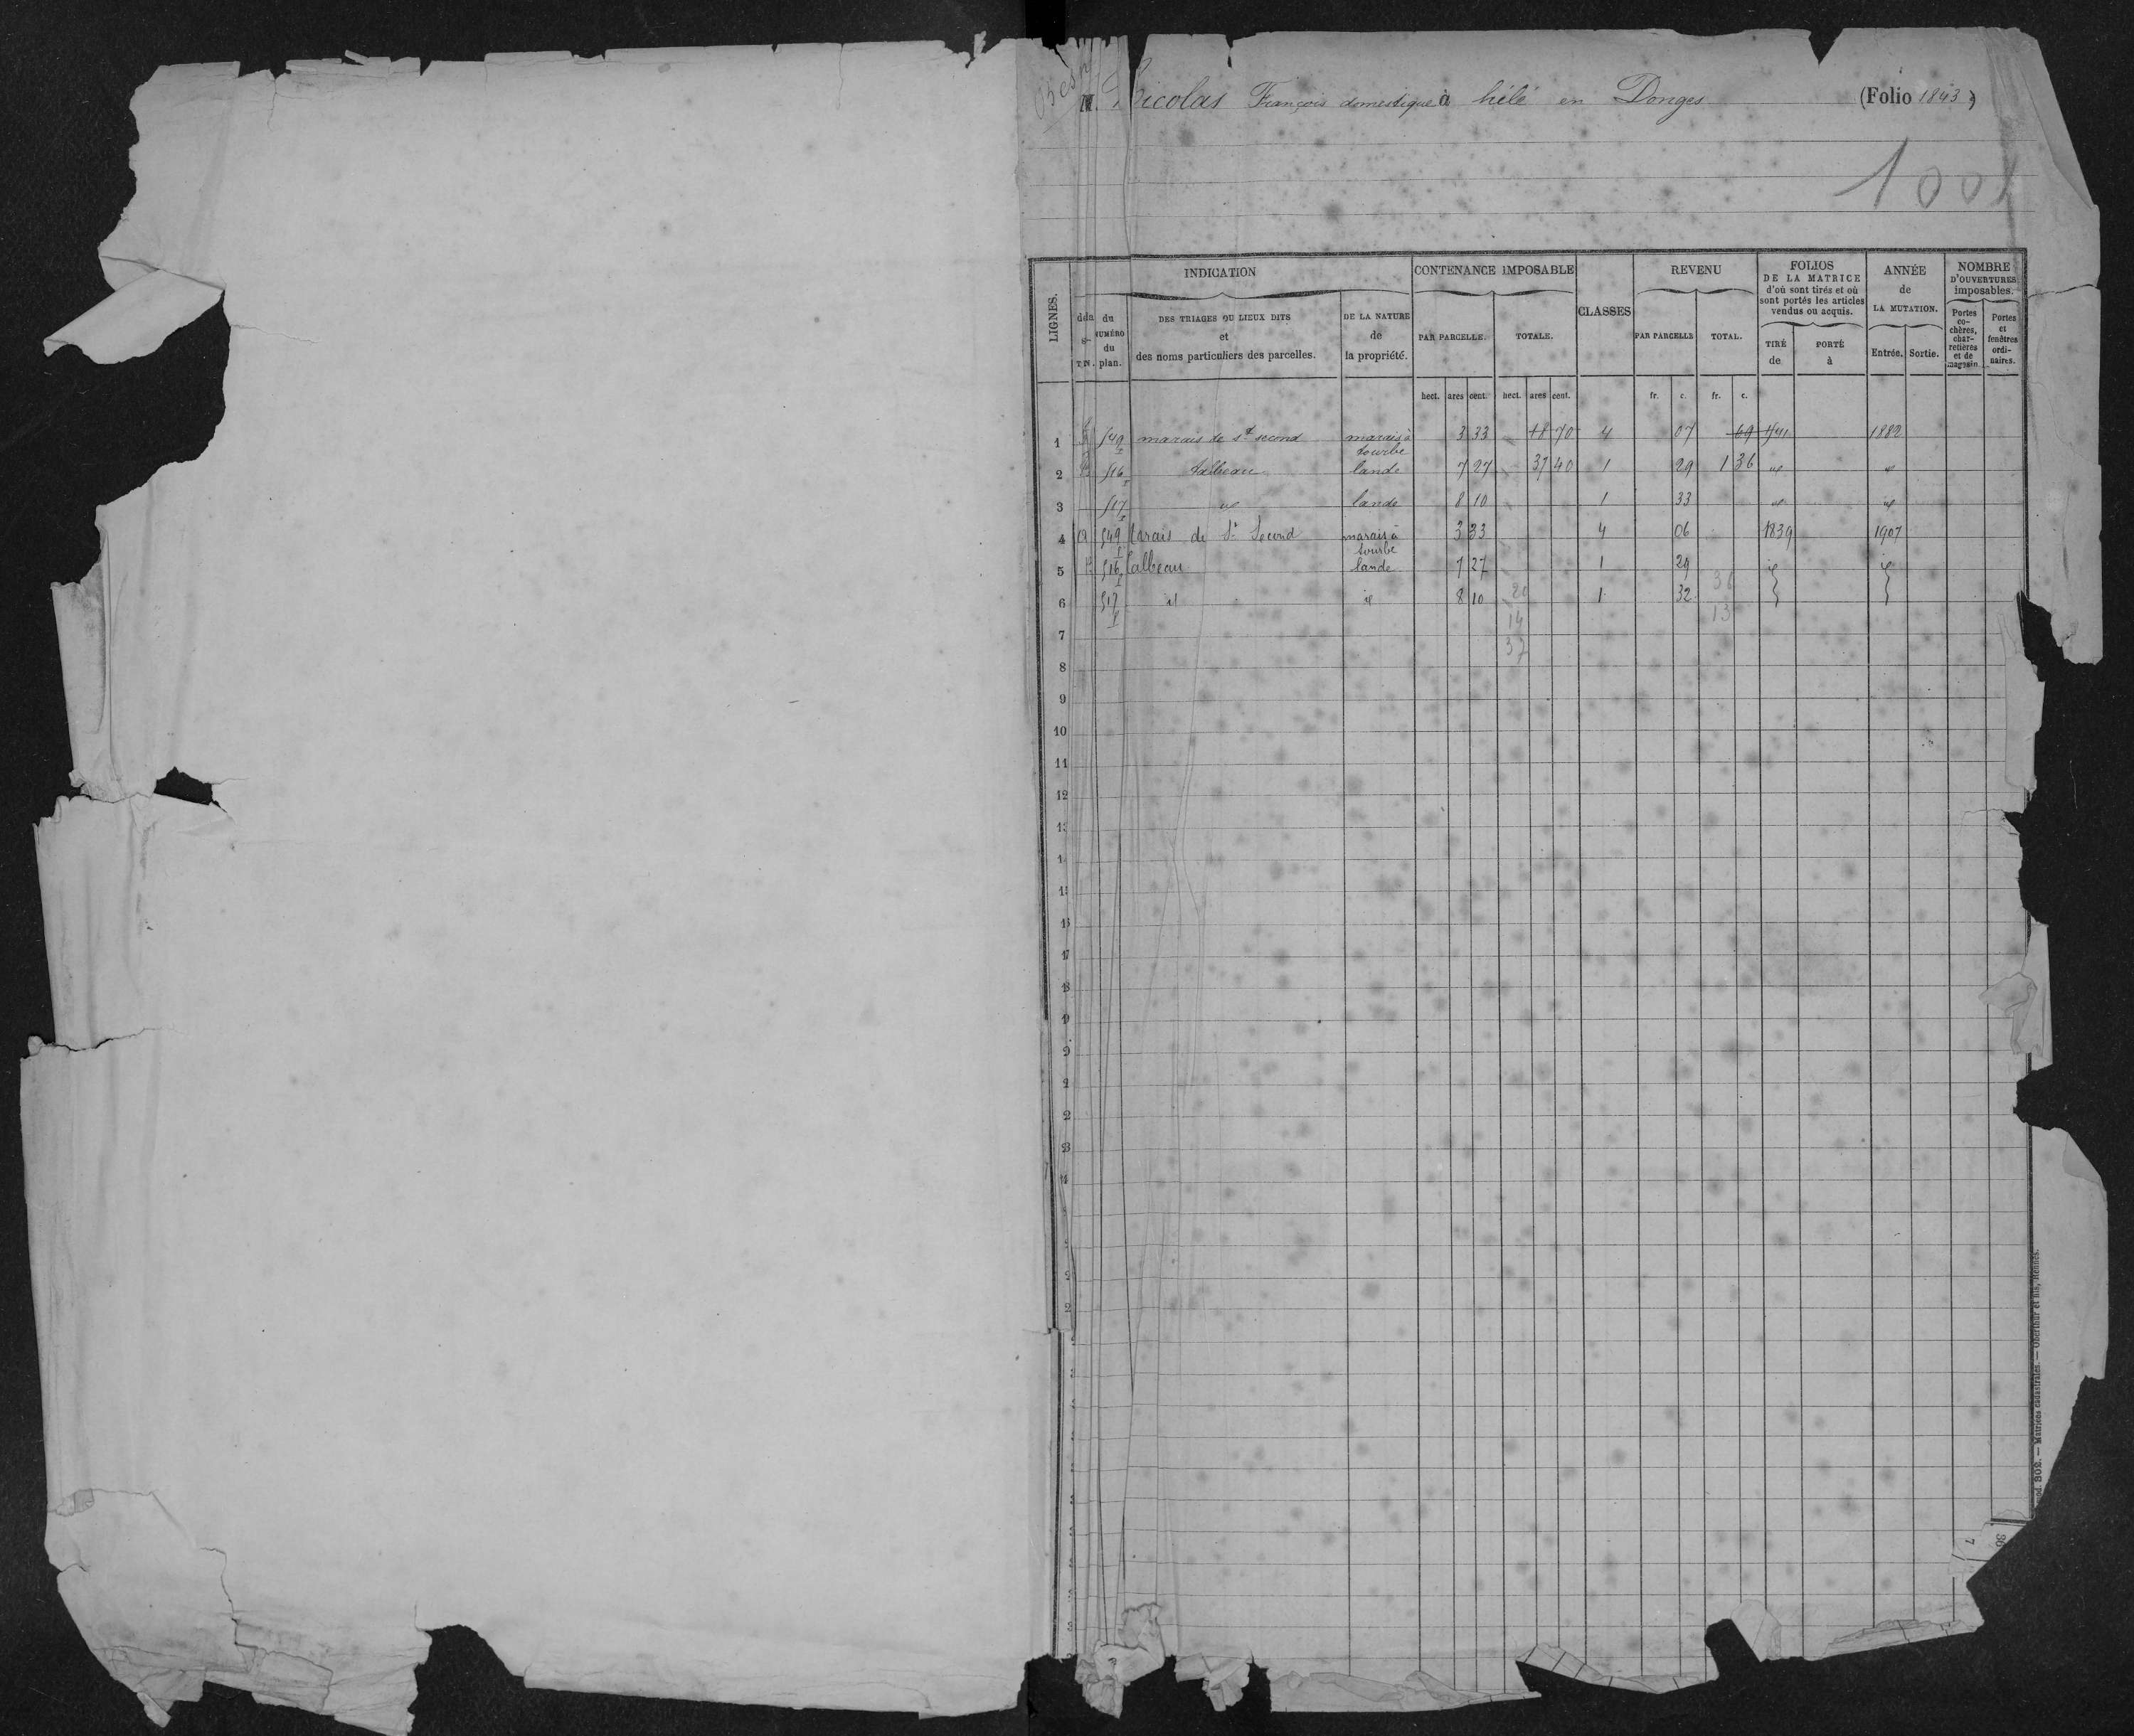 Nicolas François domestique à hélé en Donges (Folio 1843)
1001
LIGNES. INDICATION CONTENANCE IMPOSABLE CLASSES REVENU FOLIOS DE LA MATRICE d'où sont tirés et où sont portés les articles vendus ou acquis. ANNÉE de LA MUTATION. NOMBRE D'OUVERTURES imposables.
du NUMÉRO du plan. DES TRIAGES OU LIEUX DITS et des noms particuliers des parcelles. DE LA NATURE de la propriété. PAR PARCELLE. TOTALE. PAR PARCELLE TOTAL. TIRÉ de PORTÉ à Entrée. Sortie. Portes co-chères, char-retières et de magasin. Portes et fenêtres ordi-naires.
hect. ares cent. hect. ares cent. fr. c. fr. c.
1 549 marais de St second marais à tourbe 3 33 18 70 4 07 69 1882
2 516 talbeau lande 7 27 37 40 1 29 1 36 id id
3 517 id lande 8 10 1 33 id id
4 549 Marais de St Second marais à tourbe 3 33 4 06 1839 1907
5 516 talbeau lande 7 27 1 29 id id
6 517 id id 8 10 20 1 32 36
7 14 13
37
8
9
10
11
12
mod. 302. — Matrices cadastrales. — Oberthur et fils, Rennes.